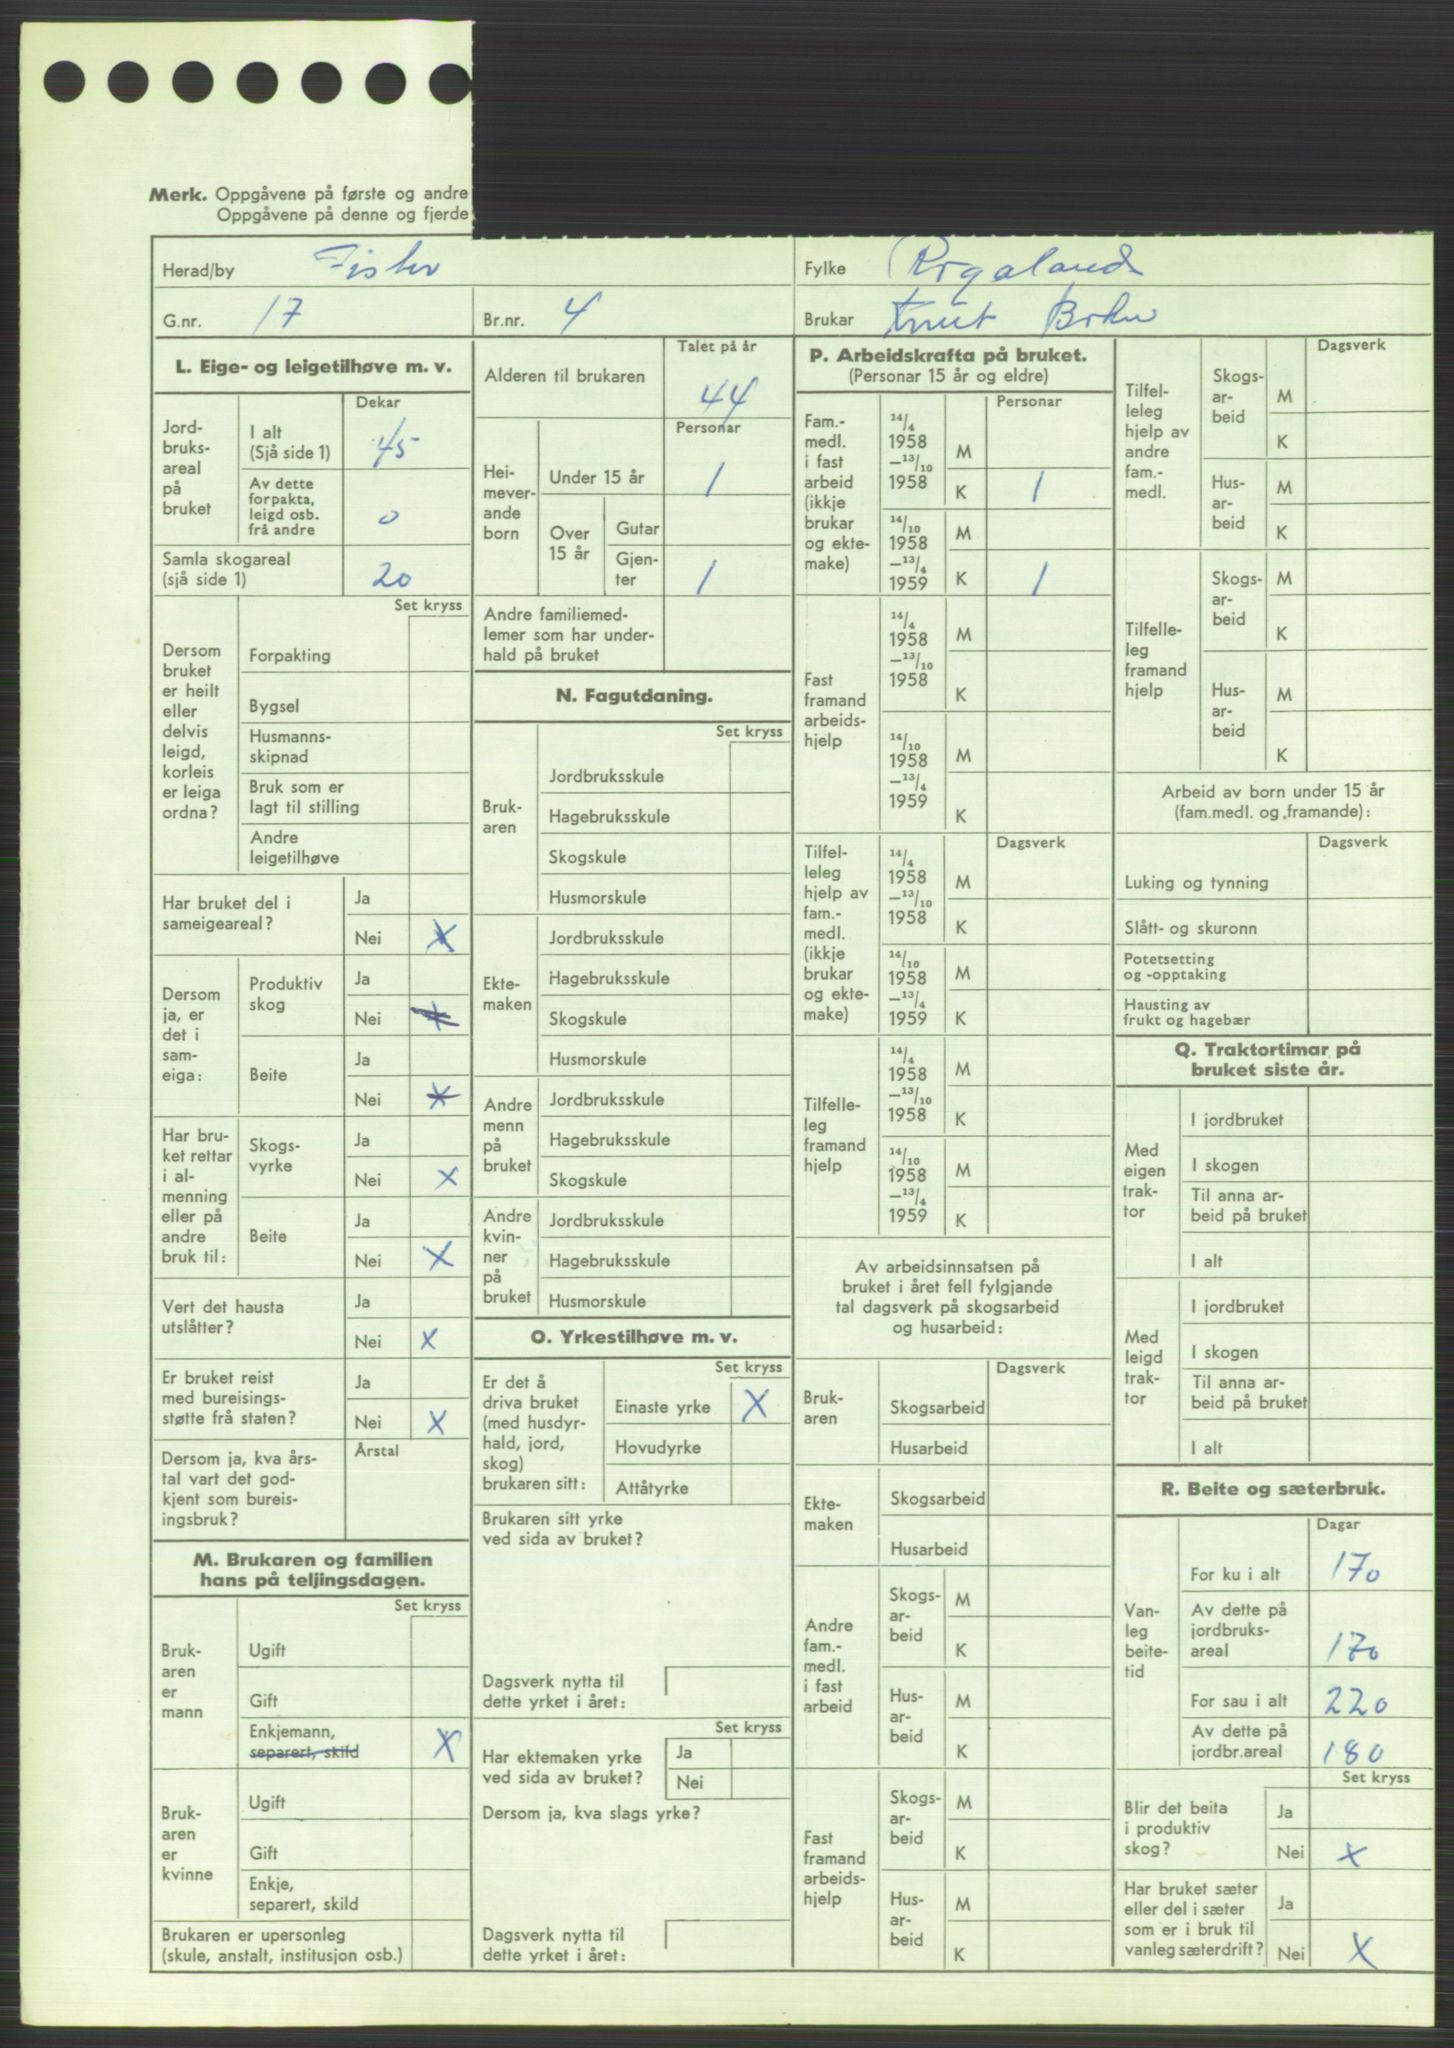 Merk. Oppgåvene på første og andre
Oppgåvene på denne og fjerde
Herad/by Fister
Fylke Rogaland
G.nr. 17
Br.nr. 4
Brukar Knut
L. Eige- og leigetilhøve m. v.
Dekar
Jord-
bruks-
areal
på
bruket
I alt
(Sjå side 1) 45
Av dette
forpakta,
leigd osb.
frå andre 0
Samla skogareal
(sjå side 1) 20
Set kryss
Dersom
bruket
er heilt
eller
delvis
leigd,
korleis
er leiga
ordna?
Forpakting
Bygsel
Husmanns-
skipnad
Bruk som er
lagt til stilling
Andre
leigetilhøve
Har bruket del i
sameigeareal?
Ja
Nei X
Dersom
ja, er
det i
sam-
eiga:
Produktiv
skog
Ja
Nei X
Beite
Ja
Nei X
Har bru-
ket rettar
i al-
menning
eller på
andre
bruk til:
Skogs-
vyrke
Ja
Nei X
Beite
Ja
Nei X
Vert det hausta
utslåtter?
Ja
Nei X
Er bruket reist
med bureisings-
støtte frå staten?
Ja
Nei X
Dersom ja, kva års-
tal vart det god-
kjent som bureis-
ingsbruk?
Årstal
M. Brukaren og familien
hans på teljingsdagen.
Set kryss
Bruk-
aren
er
mann
Ugift
Gift
Enkjemann,
separert, skild X
Bruk-
aren
er
kvinne
Ugift
Gift
Enkje,
separert, skild
Brukaren er upersonleg
(skule, anstalt, institusjon osb.)
Talet på år
Alderen til brukaren 44
Personar
Hei-
mever-
ande
born
Under 15 år 1
Over
15 år
Gutar
Gjen-
ter 1
Andre familiemed-
lemer som har under-
hald på bruket
N. Fagutdaning.
Set kryss
Bruk-
aren
Jordbruksskule
Hagebruksskule
Skogskule
Husmorskule
Ekte-
maken
Jordbruksskule
Hagebruksskule
Skogskule
Husmorskule
Andre
menn
på
bruket
Jordbruksskule
Hagebruksskule
Skogskule
Andre
kvin-
ner
på
bruket
Jordbruksskule
Hagebruksskule
Husmorskule
O. Yrkestilhøve m. v.
Set kryss
Er det å
driva bruket
(med husdyr-
hald, jord,
skog)
brukaren sitt:
Einaste yrke X
Hovudyrke
Attåtyrke
Brukaren sitt yrke
ved sida av bruket?
Dagsverk nytta til
dette yrket i året:
Set kryss
Har ektemaken yrke
ved sida av bruket?
Ja
Nei
Dersom ja, kva slags yrke?
Dagsverk nytta til
dette yrket i året:
P. Arbeidskrafta på bruket.
(Personar 15 år og eldre)
Personar
Fam.-
medl.
i fast
arbeid
(ikkje
brukar
og ekte-
make)
14/4
1958
–13/10
1958
M
K 1
14/10
1958
–13/4
1959
M
K 1
Fast
framand
arbeids-
hjelp
14/4
1958
–13/10
1958
M
K
14/10
1958
–13/4
1959
M
K
Dagsverk
Tilfel-
leleg
hjelp av
fam.-
medl.
(ikkje
brukar
og ekte-
make)
14/4
1958
–13/10
1958
M
K
14/10
1958
–13/4
1959
M
K
Tilfelle-
leg
framand
hjelp
14/4
1958
–13/10
1958
M
K
14/10
1958
–13/4
1959
M
K
Av arbeidsinnsatsen på
bruket i året fell fylgjande
tal dagsverk på skogsarbeid
og husarbeid:
Dagsverk
Bruk-
aren
Skogsarbeid
Husarbeid
Ekte-
maken
Skogsarbeid
Husarbeid
Andre
fam.-
medl.
i fast
arbeid
Skogs-
ar-
beid
M
K
Hus-
ar-
beid
M
K
Fast
framand
arbeids-
hjelp
Skogs-
ar-
beid
M
K
Hus-
ar-
beid
M
K
Dagsverk
Tilfel-
leleg
hjelp av
andre
fam.-
medl.
Skogs-
ar-
beid
M
K
Hus-
ar-
beid
M
K
Tilfelle-
leg
framand
hjelp
Skogs-
ar-
beid
M
K
Hus-
ar-
beid
M
K
Arbeid av born under 15 år
(fam.medl. og framande):
Dagsverk
Luking og tynning
Slått- og skuronn
Potetsetting
og -opptaking
Hausting av
frukt og hagebær
Q. Traktortimar på
bruket siste år.
Med
eigen
trak-
tor
I jordbruket
I skogen
Til anna ar-
beid på bruket
I alt
Med
leigd
trak-
tor
I jordbruket
I skogen
Til anna ar-
beid på bruket
I alt
R. Beite og sæterbruk.
Dagar
Van-
leg
beite-
tid
For ku i alt 170
Av dette på
jordbruks-
areal 170
For sau i alt 220
Av dette på
jordbr.areal 180
Set kryss
Blir det beita
i produktiv
skog?
Ja
Nei X
Har bruket sæter
eller del i sæter
som er i bruk til
vanleg sæterdrift?
Ja
Nei X